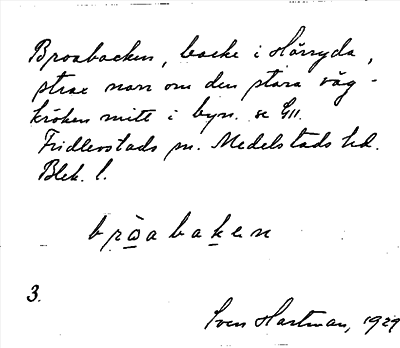 Broabacken, backe i Hårryda,
strax norr om den stora väg-
kröken mitt i byn. se G11.
Fridlevstads sn. Medelstads hd.
Blek. l.
bròabaken
3.
Sven Hartman, 1929